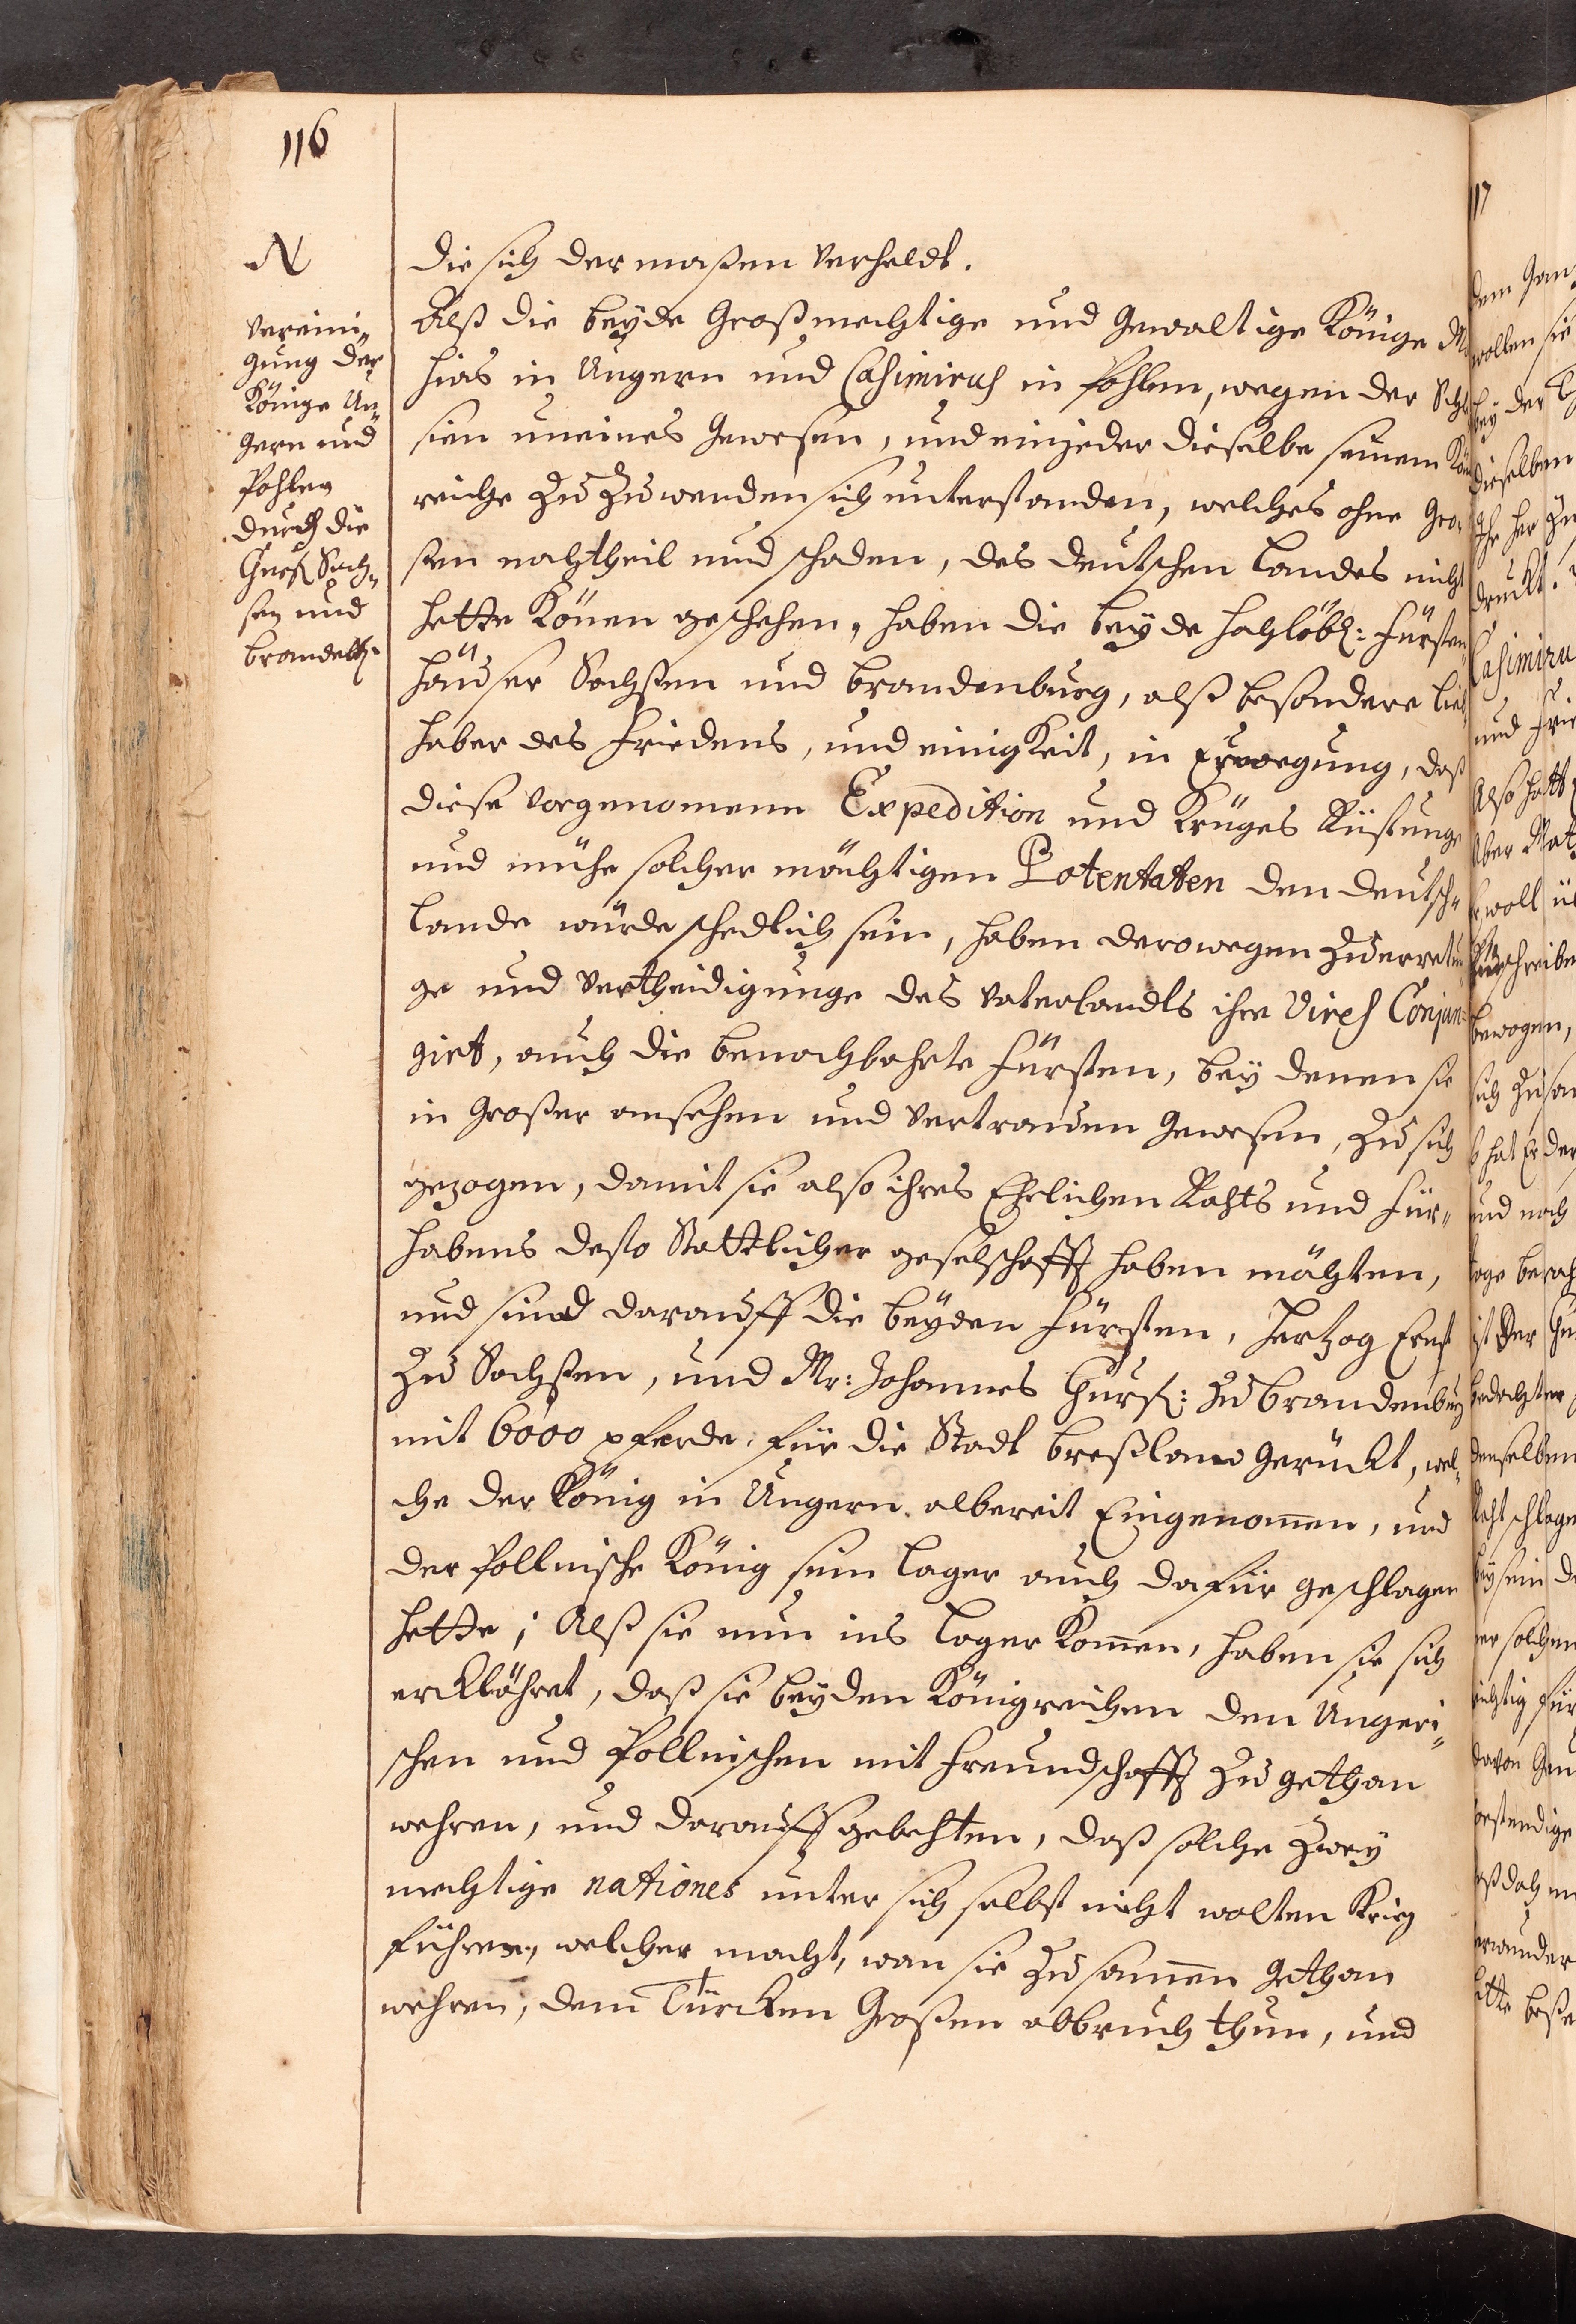 116
N
Vereini„
gung der
Könige Un„
gern und
Pohlen
durch die
Churf Sach„
sen und
brandetb.
die sich dermaßen verheldt.
Alß die beyde Großmechtige und gewaltige Könige
hias in Ungern und Casimirus in Pohlen, wegen der Schle
sien uneines gewesen, und einjeder dieselbe seinem Kön
reiche zu zu wenden sich unterstanden, welches ohne gro„
sen nachtheil und schaden, des deutschen landes nicht
hette Könen geschehen, haben die beyde hochlöbl: Fürsten„
häuser Sachssen und brandenburg, alß besondere lieb„
haber des Friedens, und einigkeit, in Erwegung, daß
diese vorgenomene Expedition und Krieges Rüstunge
und mühe solcher mächtigen Potentaten den deutsch„
lande würde schedlich sein, haben derowegen zu erretun
ge und vertheidigunge des vaterlandts ihre Vires Conjun:
girt, auch die benachbahrte Fürsten, bey denen sie
in großer ansehen und vertrauen gewesen, zu sich
gezogen, damit sie also ihres Ehrlichen Rahts und für„
habens desto Stattlicher geselschafft haben mächten,
und sind darauff die beyden Fürsten, Hertzog Ernst
zu Sachssen, und Mr: Johannes Churf: zu brandenburg
mit 6000 pferde, für die Stadt breßlaw gerückt, wel„
che der König in Ungern albereit Eingenommen, und
der Pollnische König sein lager auch dafür geschlagen
hette; Alß sie nun ins lager kommen, haben sie sich
erklähret, daß sie beyden Königreichen den Ungeri„
schen und Pollnischen mit freundschafft zu gethan
wehren, und darauff gebehten, daß solche zwey
mechtige nationes unter sich selbst nicht wolten Krieg
führen, welcher macht, wan sie zu sammen gethan
wehren, dem Türcken Großen abbruch thun, und
117
wollen sie
bey der
dieselben
druckt.
Casimiru
und frie
Also hatt
Aber Mat
bewogen,
und noch
ist der
denselben